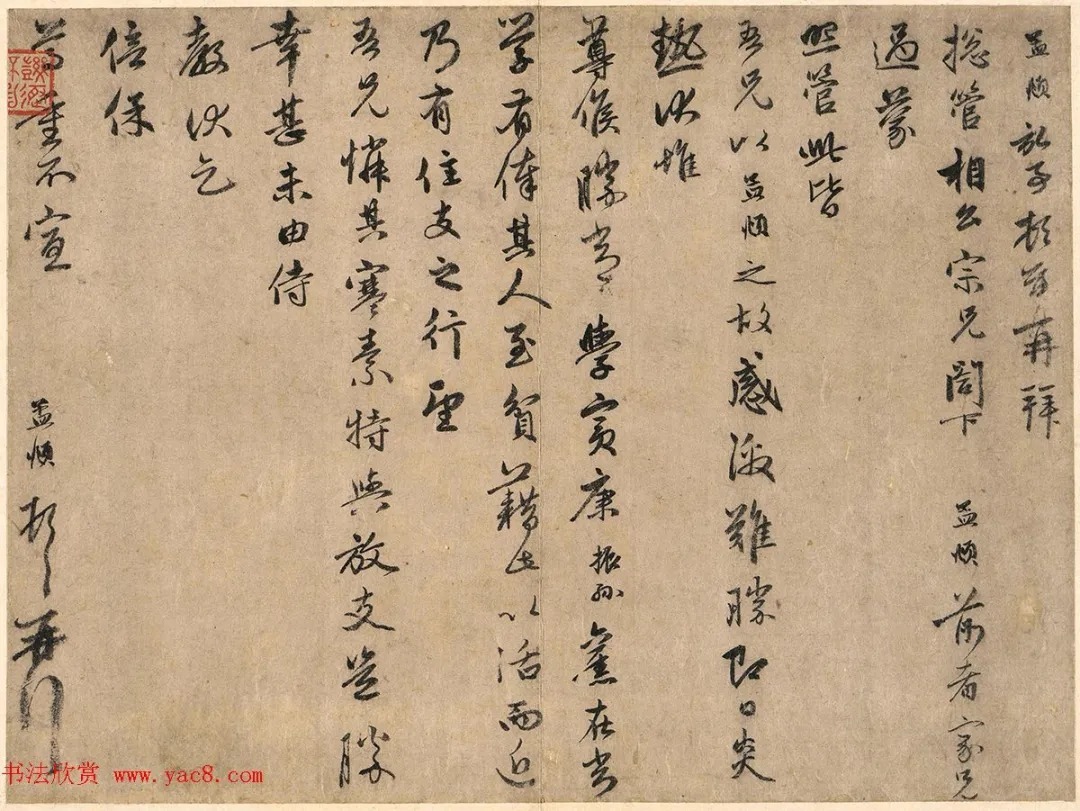 孟頫記事頓首再拜
緫管相公宗兄閣下 孟頫前者家兄
過蒙
照管此皆
吾兄以孟頫之故感激難勝即日炎
熱伏惟
尊候勝常學賓康振孫舊在常
學有俸其人至貧藉此以活而近
乃有住支之行望
吾兄憐其寒素特與放支豈勝
幸甚未由侍
教伏乞
倍保
尊重不宣 孟頫頓首再拜
书法欣赏 www.yac8.com